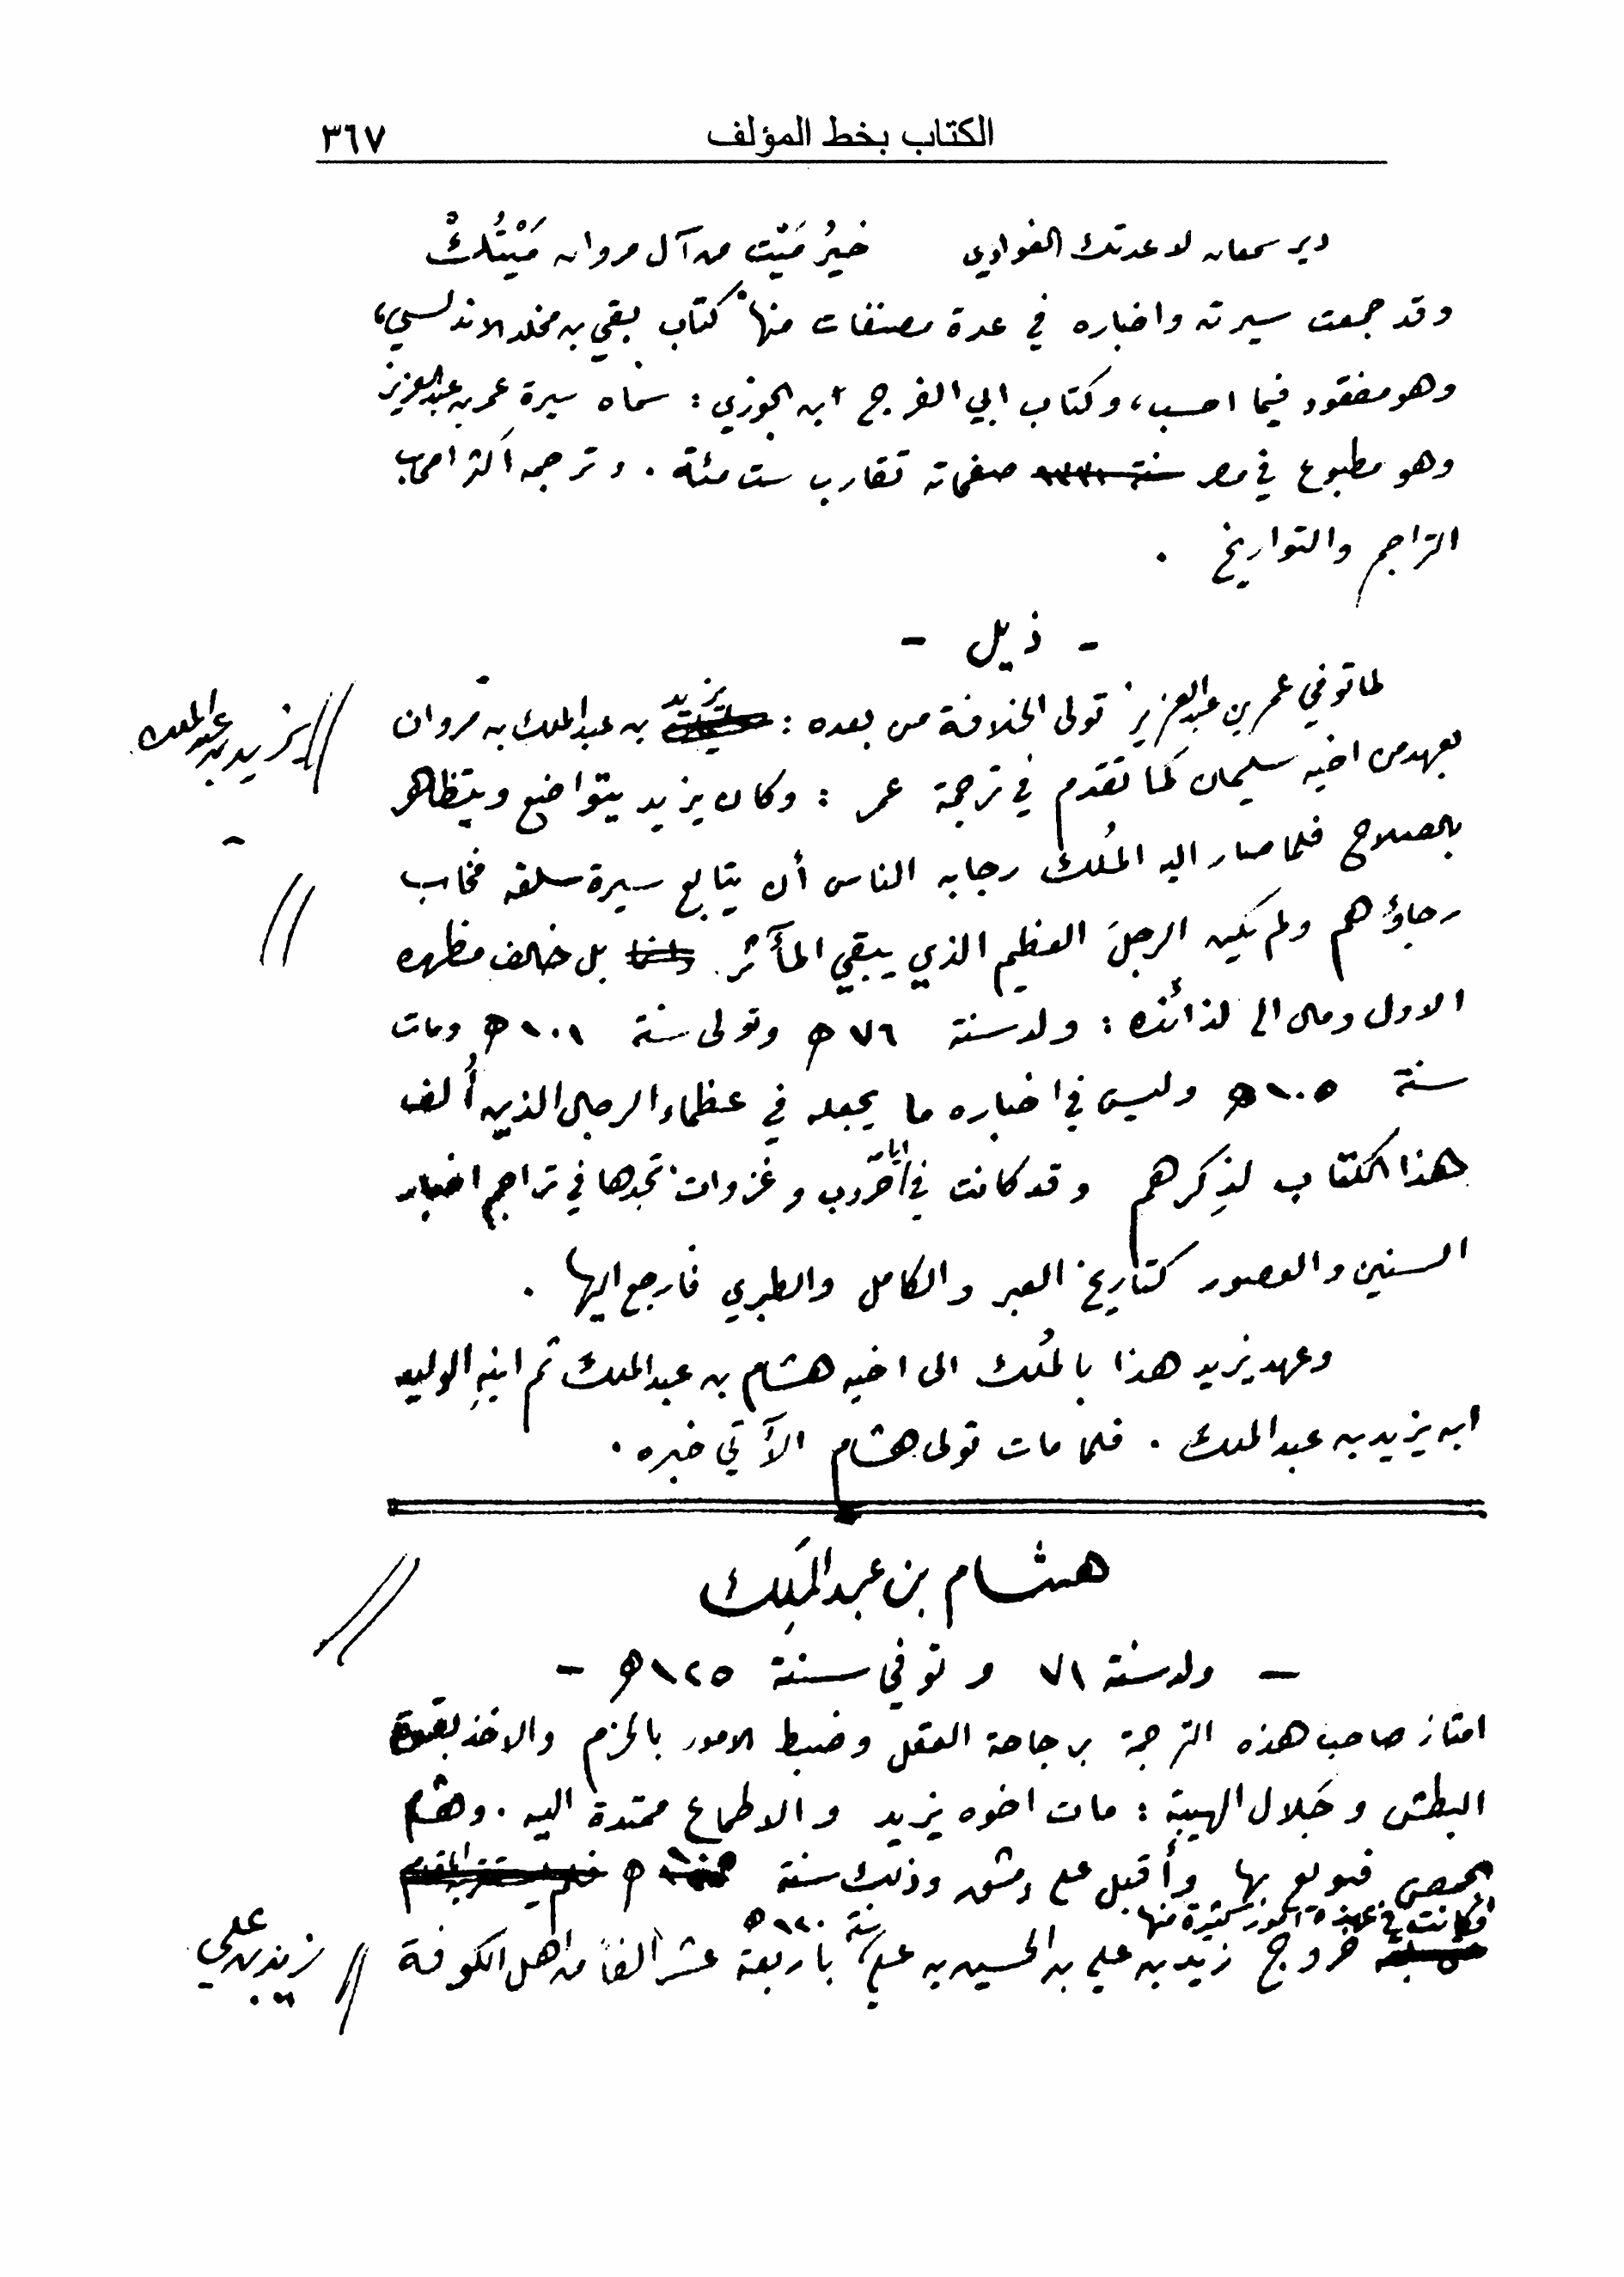 الكتاب بخط المؤلف ٣٦٧
دير سمعان لا عدتك الغوادي خيرُ مَيْت من آل مروان مَيْتُكْ
وقد جمعت سيرته واخباره في عدة مصنفات منها كتاب بقي بن مخلد الاندلسي،
وهو مفقود فيما احسب، وكتاب ابي الفرج ابن الجوزي : سماه سيرة عمر بن عبد العزيز
وهو مطبوع في مصر صفحاته تقارب ست مئة . وترجمه اكثر اصحاب
التراجم والتواريخ .
- ذيل -
لما توفي عمر بن عبد العزيز تولى الخلافة من بعده : يزيد بن عبد الملك بن مروان
يزيد بن عبد الملك
بعهد من اخيه سليمان كما تقدم في ترجمة عمر : وكان يزيد يتواضع ويتظاهر
بالصلاح فلما صار اليه المُلك رجا به الناس أن يتابع سيرة سلفه فخاب
رجاؤهم ولم يكن الرجلَ العظيم الذي يبقي المآثر بل خالف مظهره
الاول ومال الى لذائذه : ولد سنة ٧٦ هـ وتولى سنة ١٠١ هـ ومات
سنة ١٠٥ هـ وليس في اخباره ما يجعله في عظماء الرجال الذين أُلف
هذا الكتاب لذِكرهم وقد كانت في ايامه حروب وغزوات تجدها في تراجم اخبار
السنين والعصور كتاريخ العبر والكامل والطبري فارجع اليها .
وعهد يزيد هذا بالمُلك الى اخيه هشام بن عبد الملك ثم ابنهِ الوليد
ابن يزيد بن عبد الملك . فلما مات تولى هشام الآتي خبره .
هشام بن عبد المَلِك
- ولد سنة ٧١ و توفي سنة ١٢٥ هـ -
امتاز صاحب هذه الترجمة برجاحة العقل وضبط الامور بالحزم والاخذ بقوة
البطش وجَلال الهيبة : مات اخوه يزيد والاطماع ممتدة اليه . وهشام
بحمص فبويع بها وأقبل على دمشق وذلك سنة هـ
فكانت في عهده امور كثيرة منها
خروج زيد بن علي بن الحسين بن علي سنة ١٢٠ هـ باربعة عشر الفاً من اهل الكوفة
زيد بن علي